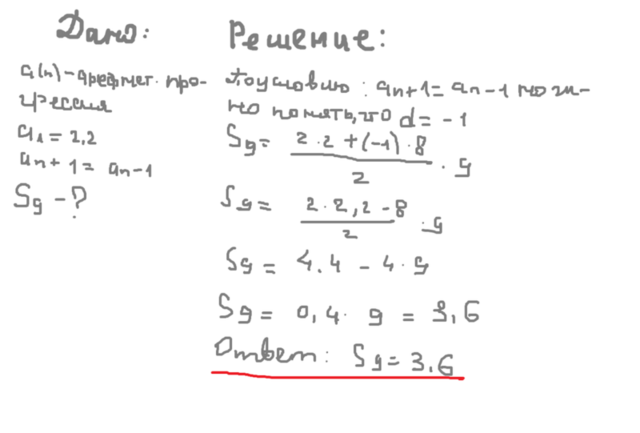 Дано:
a(n)-арефмет. про-
грессия
a1 = 2,2
an+1 = an-1
S9 - ?
Решение:
По условию : an+1 = an-1 мож-
но понять, что d = -1
S9 = 2·2+(-1)·8 / 2 · 9
S9 = 2·2,2-8 / 2 · 9
S9 = 4.4 - 4·9
S9 = 0,4· 9 = 3,6
Ответ: S9 = 3.6